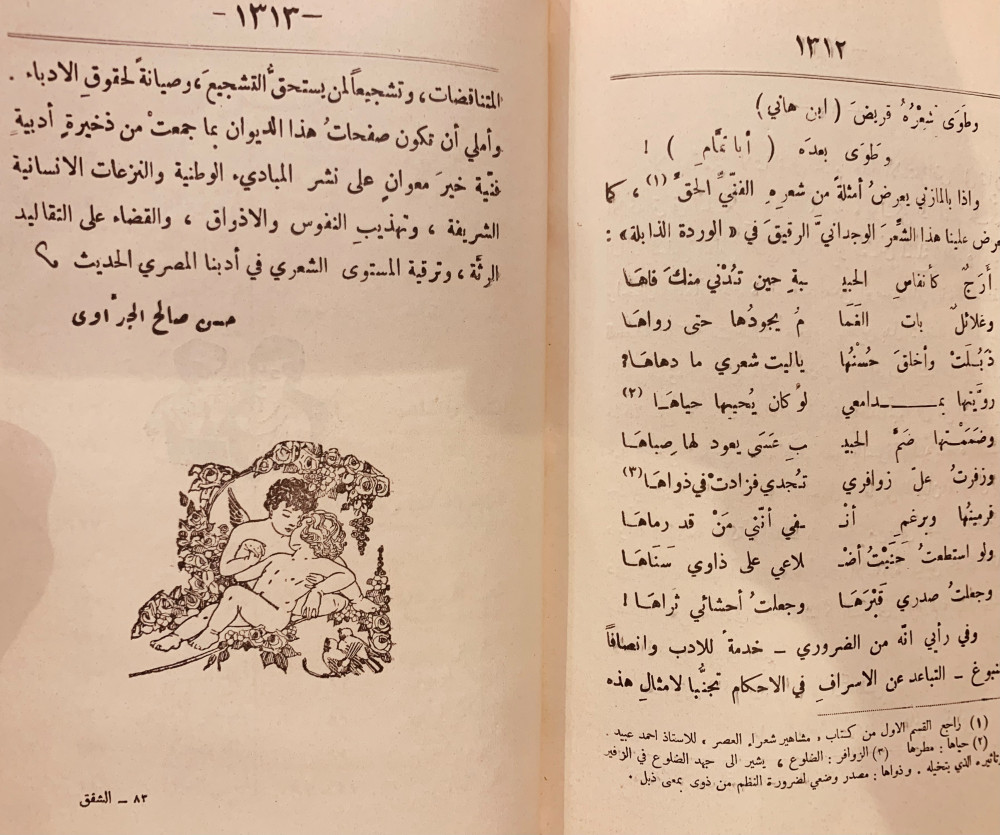 ١٣١٢
وطَوَى شعْرُهُ قريضَ (ابن هاني)
وطَوَى بعدَه (أبا تمَّامِ)!
واذا بالمازني يعرضُ أمثلةً من شعرِهِ الفنّيِّ الحقِّ (١)، كما
يعرض علينا هذا الشِّعرَ الوجدانيَّ الرقيقَ في «الوردة الذابلة»:
أَرَجٌ كأنفاسِ الحبيـ ـبةِ حين تُدْني منكَ فاهَـا
وغلائلٌ بات الغَمَا مُ يجودُها حتى رواهَـا
ذَبُلَتْ وأخلقَ حُسْنُها ياليت شعري ما دهاهَـا؟
رويَّتها بمـــدامعي لو كان يُحييها حياهَـا (٢)
وضَمَمْتها ضَمَّ الحبيـ ـبِ عَسَى يعود لها صِباهَـا
وزفرتُ علّ زوافري تُجدي فزادتْ في ذواهَـا (٣)
فرميتُها وبرغمِ أنـ ـفي أنّني مَنْ قد رماهَـا
ولو استطعتُ حَنَيْتُ أضـ ـلاعي على ذاوي سَنَاهَـا
وجعلتُ صدري قَبْرَهَـا وجعلتُ أحشائي ثَراهَـا!
وفي رأيي انّه من الضروري – خدمةً للادب وانصافاً
للنبوغ – التباعد عن الاسرافِ في الاحكام تجنُّبا لامثالِ هذه
(١) راجع القسم الاول من كتاب «مشاهير شعراء العصر» للاستاذ احمد عبيد.
(٢) حياها: مطرها (٣) الزوافر: الضلوع، يشير الى جهد الضلوع في الزفير
وتاثيره الذي يتخيله. وذواها: مصدر وضعي لضرورة النظم من ذوى بمعنى ذبل.
–١٣١٣–
المتناقضات، وتشجيعاً لمن يستحقُّ التشجيعَ، وصيانةً لحقوقِ الادباء.
وأملي أن تكون صفحاتُ هذا الديوان بما جمعتْ من ذخيرةٍ أدبيةٍ
فنّيّة خيرَ معوانٍ على نشر المباديء الوطنية والنزعات الانسانية
الشريفة، وتهذيبِ النفوس والاذواق، والقضاء على التقاليد
الرثَّة، وترقية المستوى الشعري في أدبنا المصري الحديث
حسن صالح الجدّاوى
٨٣ – الشفق